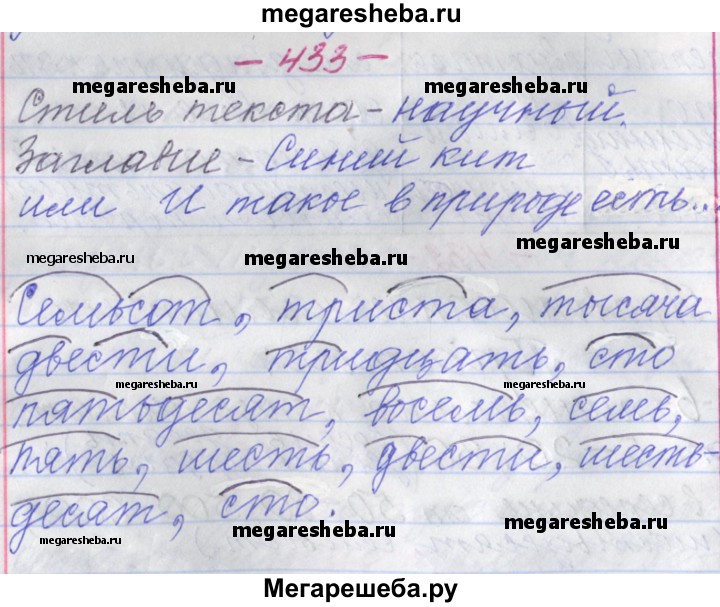 megaresheba.ru
- 433 -
megaresheba.ru megaresheba.ru
Стиль текста - научный.
Заглавие - Синий кит
или И такое в природе есть...
megaresheba.ru megaresheba.ru megaresheba.ru
Семьсот, триста, тысяча
двести, тридцать, сто
megaresheba.ru megaresheba.ru
пятьдесят, восемь, семь,
пять, шесть, двести, шесть-
десят, сто.
megaresheba.ru megaresheba.ru megaresheba.ru
Мегарешеба.ру